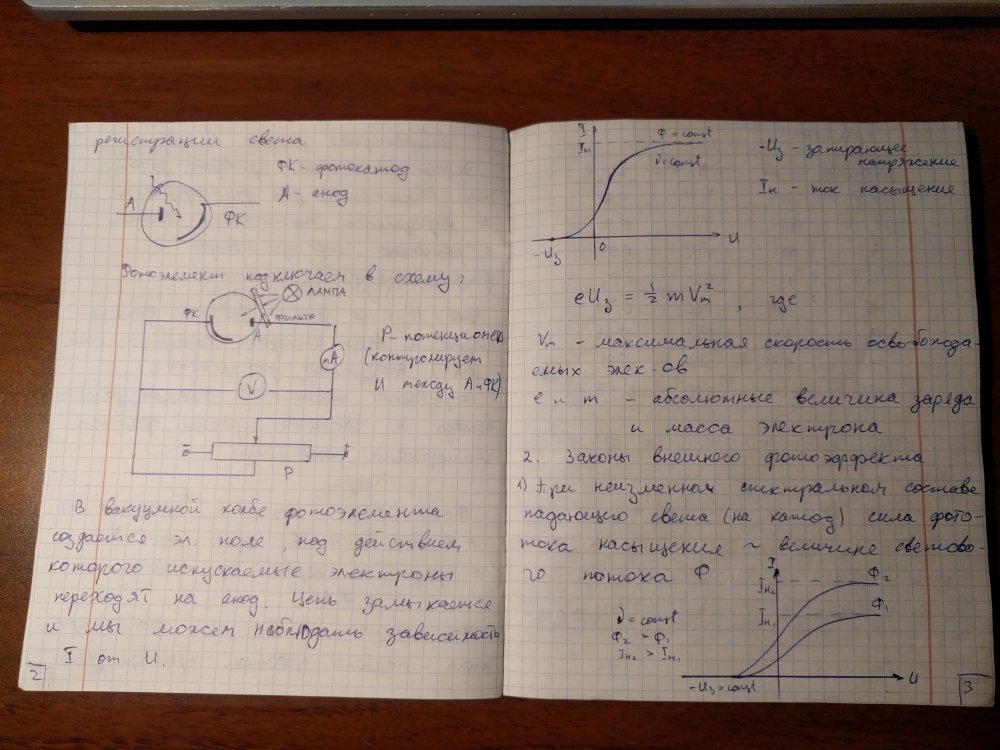 регистрации света
ФК - фотокатод
А - анод
А
ФК
Фотоэлемент подключаем в схему:
ЛАМПА
ФК
А
ФИЛЬТР
mA
V
Р - потенциометр
(контролирует
U между А и ФК)
- +
Р
В вакуумной колбе фотоэлемента
создается эл. поле, под действием
которого испускаемые электроны
переходят на анод. Цепь замыкается
и мы можем наблюдать зависимость
I от U.
2
I
Iн
Ф = const
ν = const
-Uз 0 U
-Uз - запирающее
напряжение
Iн - ток насыщения
eUз = ½ m Vm², где:
Vm - максимальная скорость освобожда-
емых элек-ов
e и m - абсолютные величина заряда
и масса электрона
2. Законы внешнего фотоэффекта
1) При неизменном спектральном составе
падающего света (на катод) сила фото-
тока насыщения ~ величине светово-
го потока Ф
I
Iн₂ Ф₂
Iн₁ Ф₁
ν = const
Ф₂ > Ф₁
Iн₂ > Iн₁
-Uз = const U
3